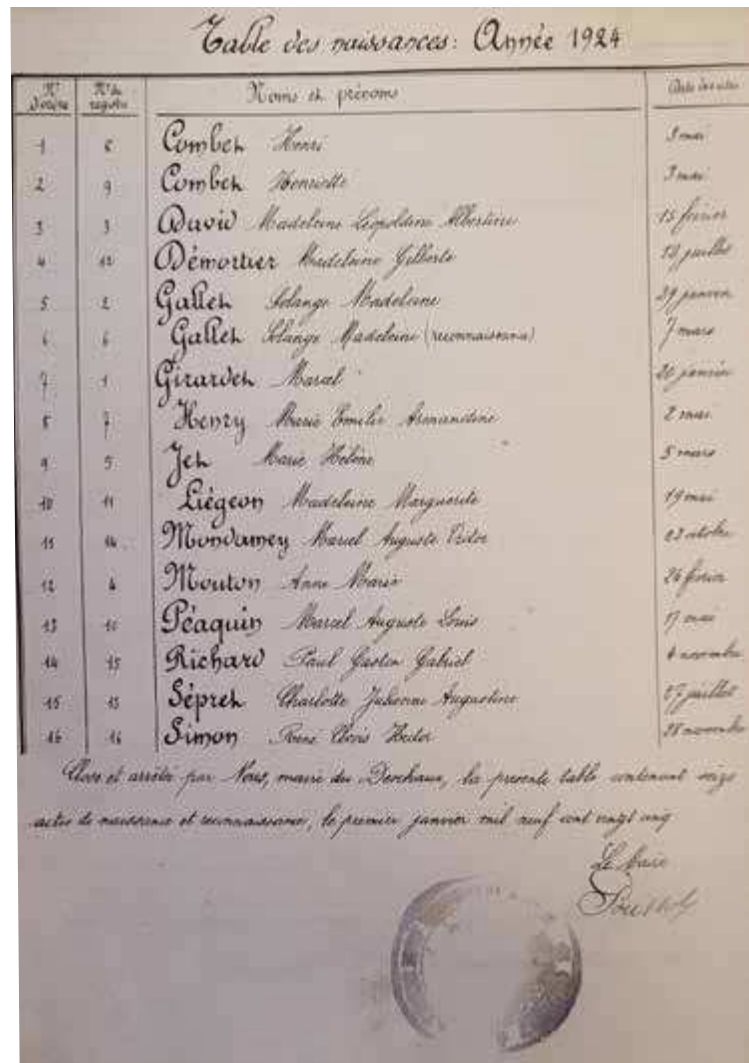 Table des naissances: Année 1924
N° d'ordre N° du registre Noms et prénoms Date des actes
1 8 Combet Henri 3 mai
2 9 Combet Henriette 3 mai
3 3 David Madeleine Léopoldine Albertine 15 février
4 12 Démortier Madeleine Gilberte juillet
5 2 Gallet Solange Madeleine 29 janvier
6 6 Gallet Solange Madeleine (reconnaissance) 7 mars
7 1 Girardet Marcel 20 janvier
8 7 Henry Marie Emilie Armandine 2 mai
9 5 Jet Marie Hélène 5 mars
10 11 Liégeon Madeleine Marguerite 19 mai
11 14 Mondamey Marcel Auguste Victor 23 octobre
12 4 Mouton Anne Marie 26 février
13 10 Péaquin Marcel Auguste Louis 17 mai
14 15 Richard Paul Gaston Gabriel 6 novembre
15 13 Sépret Charlotte Julienne Augustine 27 juillet
16 16 Simon René Clovis Hector 28 novembre
Clos et arrêté par Nous, maire du Deschaux, la présente table contenant seize
actes de naissance et reconnaissance, le premier janvier mil neuf cent vingt cinq
Le Maire